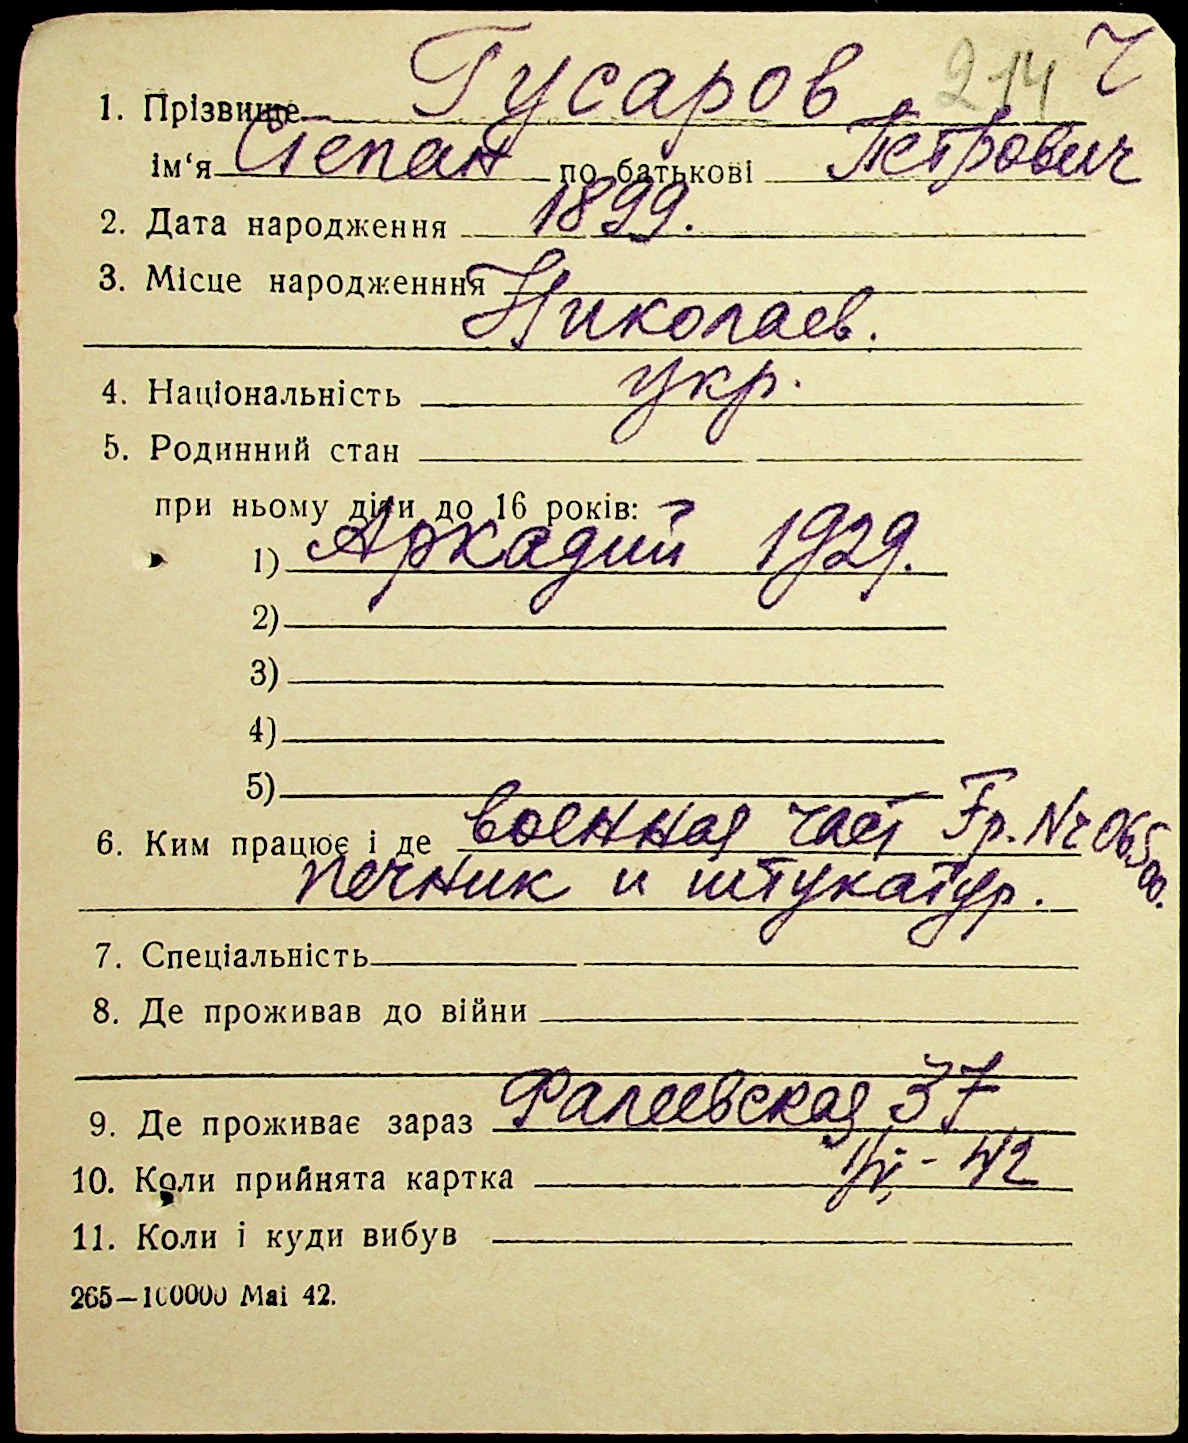 1. Прізвище Гусаров 214 Ч
ім‘я Степан по батькові Петрович
2. Дата народження 1899.
3. Місце народженння
Николаев.
4. Національність укр.
5. Родинний стан
при ньому діти до 16 років:
1) Аркадий 1929.
2)
3)
4)
5)
6. Ким працює і де военная част Fp. Nr 06500.
печник и штукатур.
7. Спеціальність
8. Де проживав до війни
9. Де проживає зараз Фалеевская 37
10. Коли прийнята картка - 42
11. Коли і куди вибув
265—100000 Mai 42.